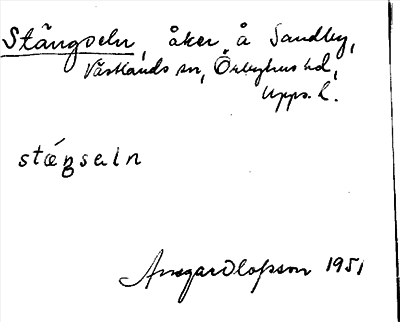 Stängseln, åker å Sandby,
Västlands sn, Örbyhus hd,
Upps. l.
stæŋsəln
Ansgar Olofsson 1951